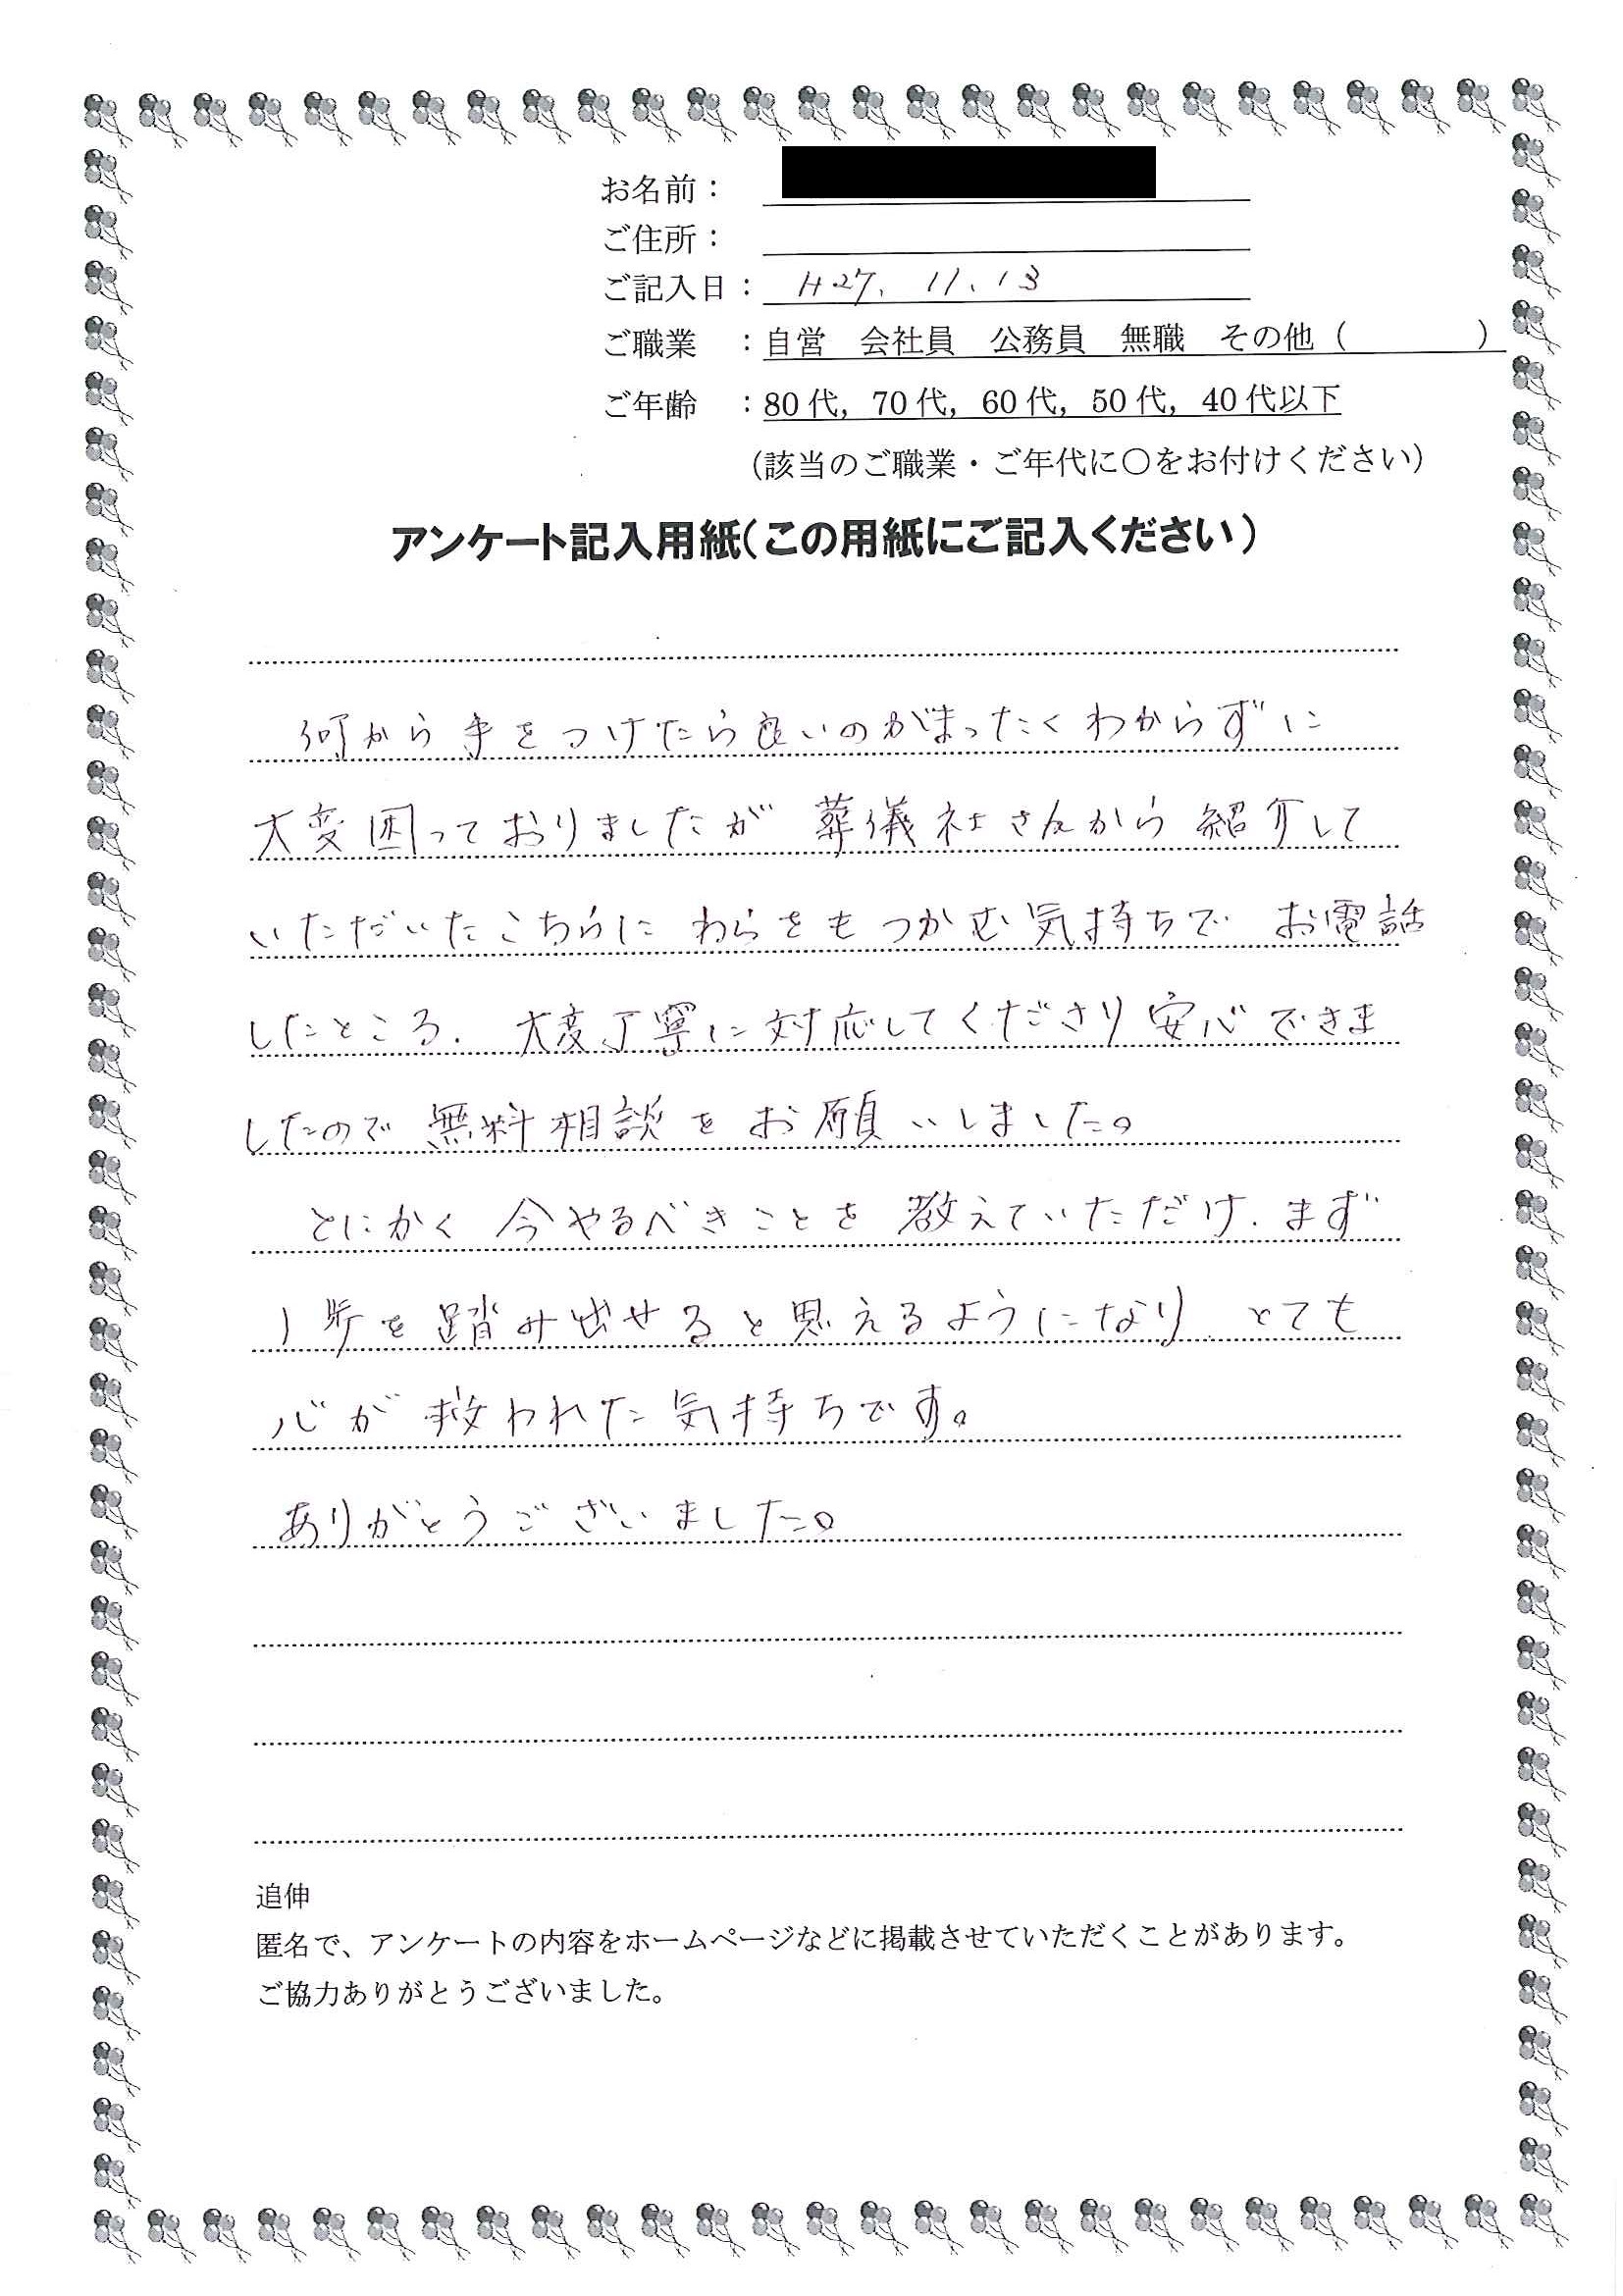 お名前：
ご住所：
ご記入日： H27. 11. 13
ご職業 ：自営 会社員 公務員 無職 その他（ ）
ご年齢 ：80代，70代，60代，50代，40代以下
（該当のご職業・ご年代に〇をお付けください）
アンケート記入用紙（この用紙にご記入ください）
何から手をつけたら良いのがまったくわからずに
大変困っておりましたが 葬儀社さんから紹介して
いただいたこちらに わらをもつかむ気持ちで お電話
したところ. 大変丁寧に対応してくださり安心できま
したので 無料相談をお願いしました。
とにかく 今やるべきことを 教えていただけ. まず
1歩を踏み出せると思えるようになり とても
心が救われた気持ちです。
ありがとうございました。
追伸
匿名で、アンケートの内容をホームページなどに掲載させていただくことがあります。
ご協力ありがとうございました。